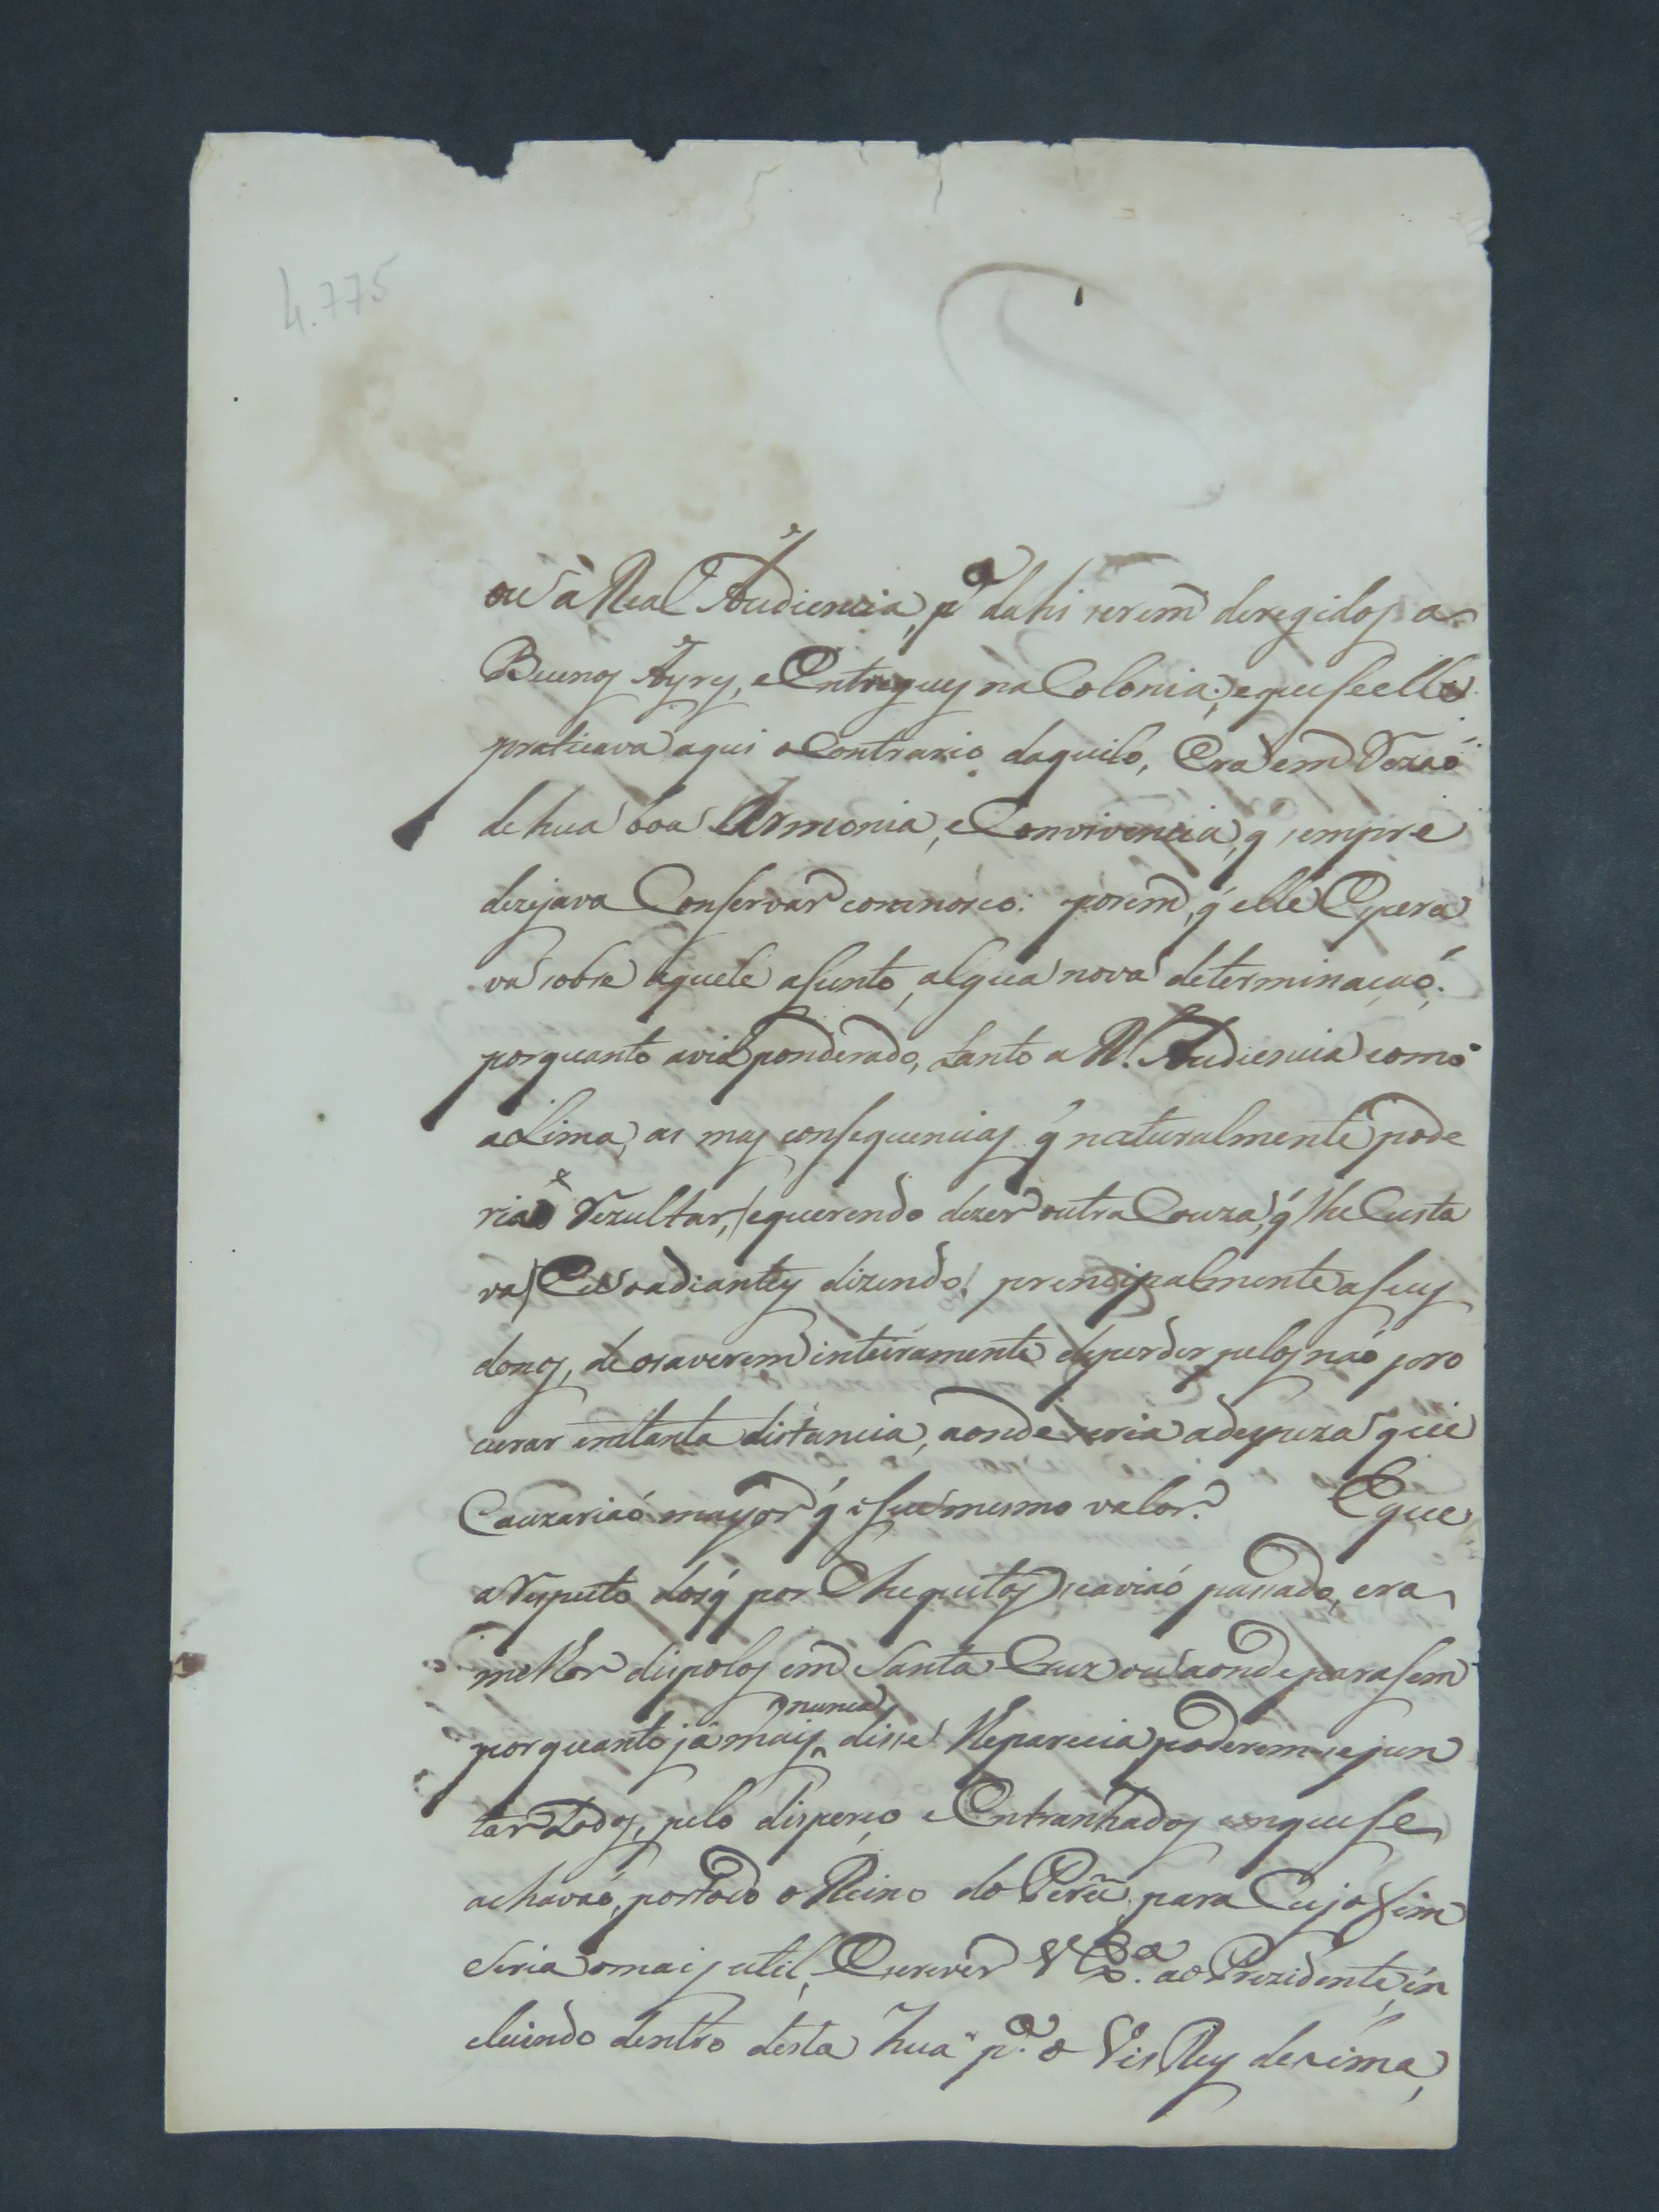 4.775
ou à Real Audiencia, p.ª dahi serem deregidos a
Buenos Ayres, e Entregues na Colonia; e que se elle
praticava aqui o Contrario daquilo, Era em Rozaõ
de hua boa Armonia, e Convivencia, q̃ sempre
dezejava Conservar comnosco: porem, q̃ elle Espera
va sobre aquele asunto, algua nova determinaçaõ;
porquanto avia ponderado, tanto a R.l Audiencia como
a Lima, as mas consequencias q̃ naturalmente pode
riaõ Rezultar, (e querendo dezer outra Couza, q̃ lhe Custa
va) dizendo! prencipalmente a seus
donos, de os averem inteiramente deperder pelos naõ pro
curar em tanta distancia, aonde seria a despeza que
Cauzariaõ mayor q̃ o seu mesmo valor? E que
a Respeito dos q̃ por Chequitos se aviaõ pasado, era
melhor dispolos em Santa Cruz ou aonde parasem
porquanto já mais nunca disse lhe parecia poderem se jun
tar Todos, pelo disperço e Entranhados em que se
achavaõ, por todo o Reino do Perũ, para Cujo fim
Seria o mais util, Escrever V Ex.ª ao Prezidente, in
cluindo dentro desta hua p.ª o Vis Rey de Lima,